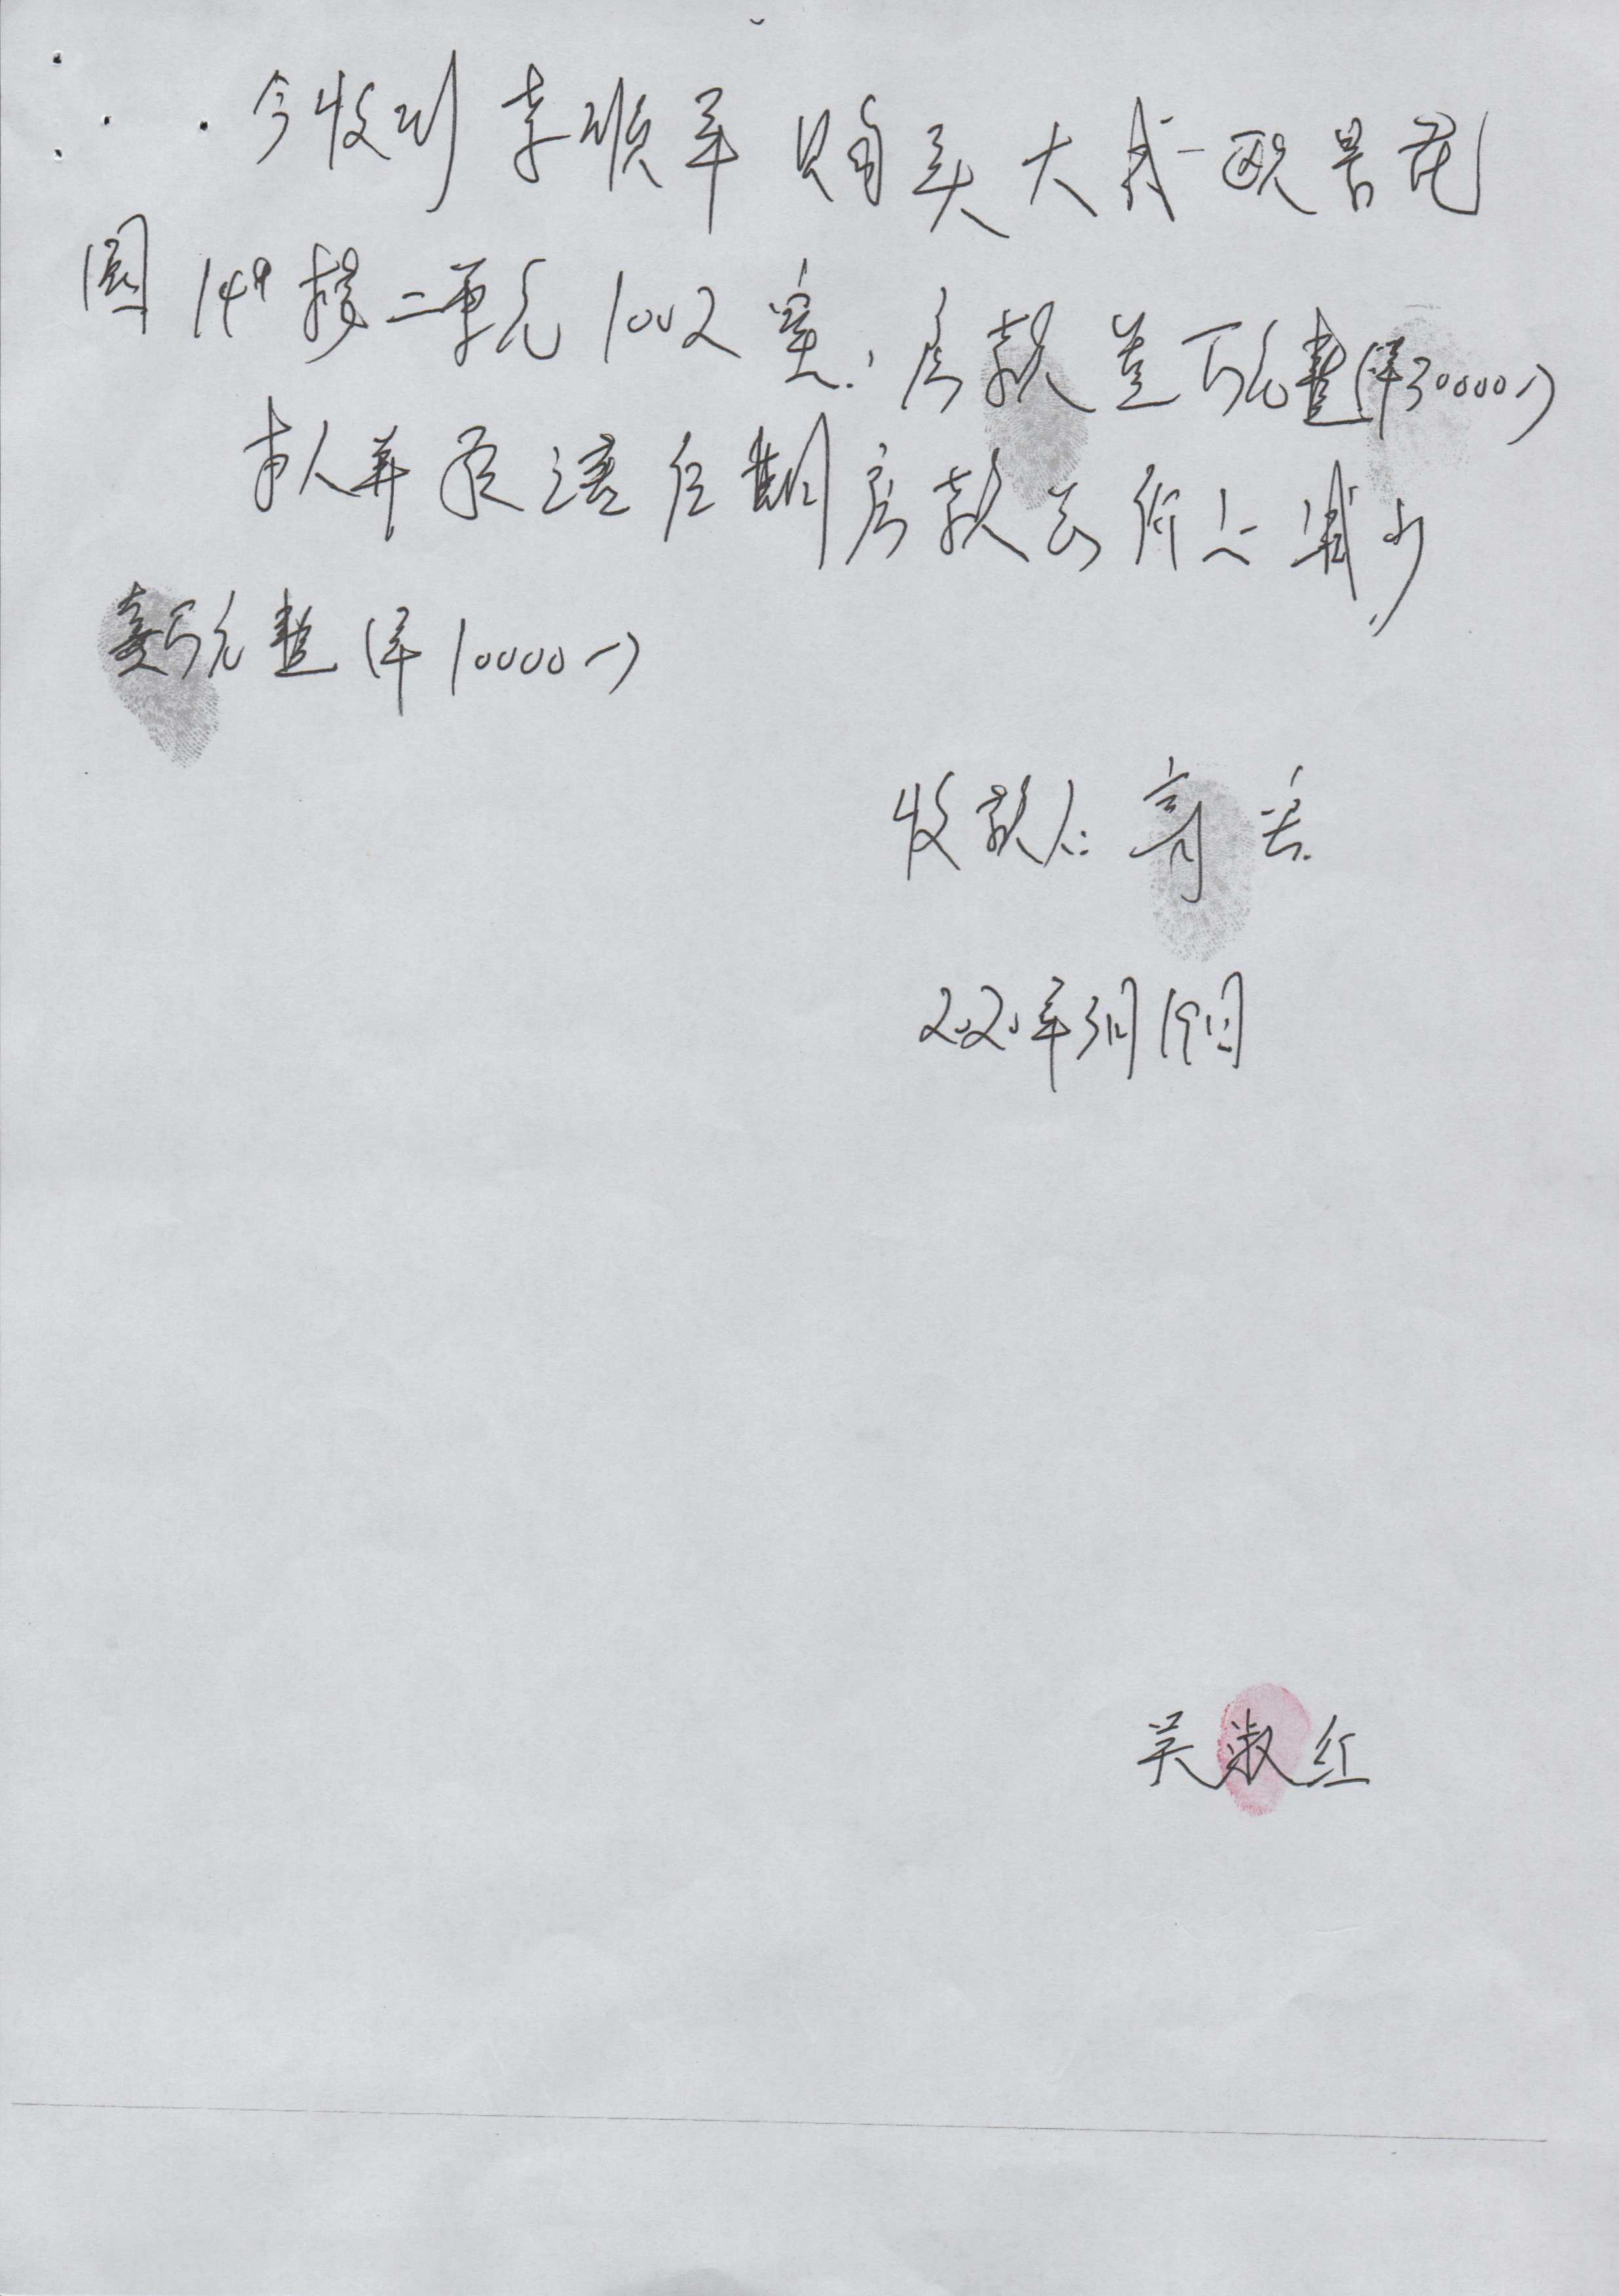 今收到李顺军购买大成一欧景花
园14#楼二单元1002室.房款叁万元整(¥30000-)
本人并承诺后期房款总价上减少
壹万元整(¥10000-)
收款人:
2020年3月19日
吴淑红